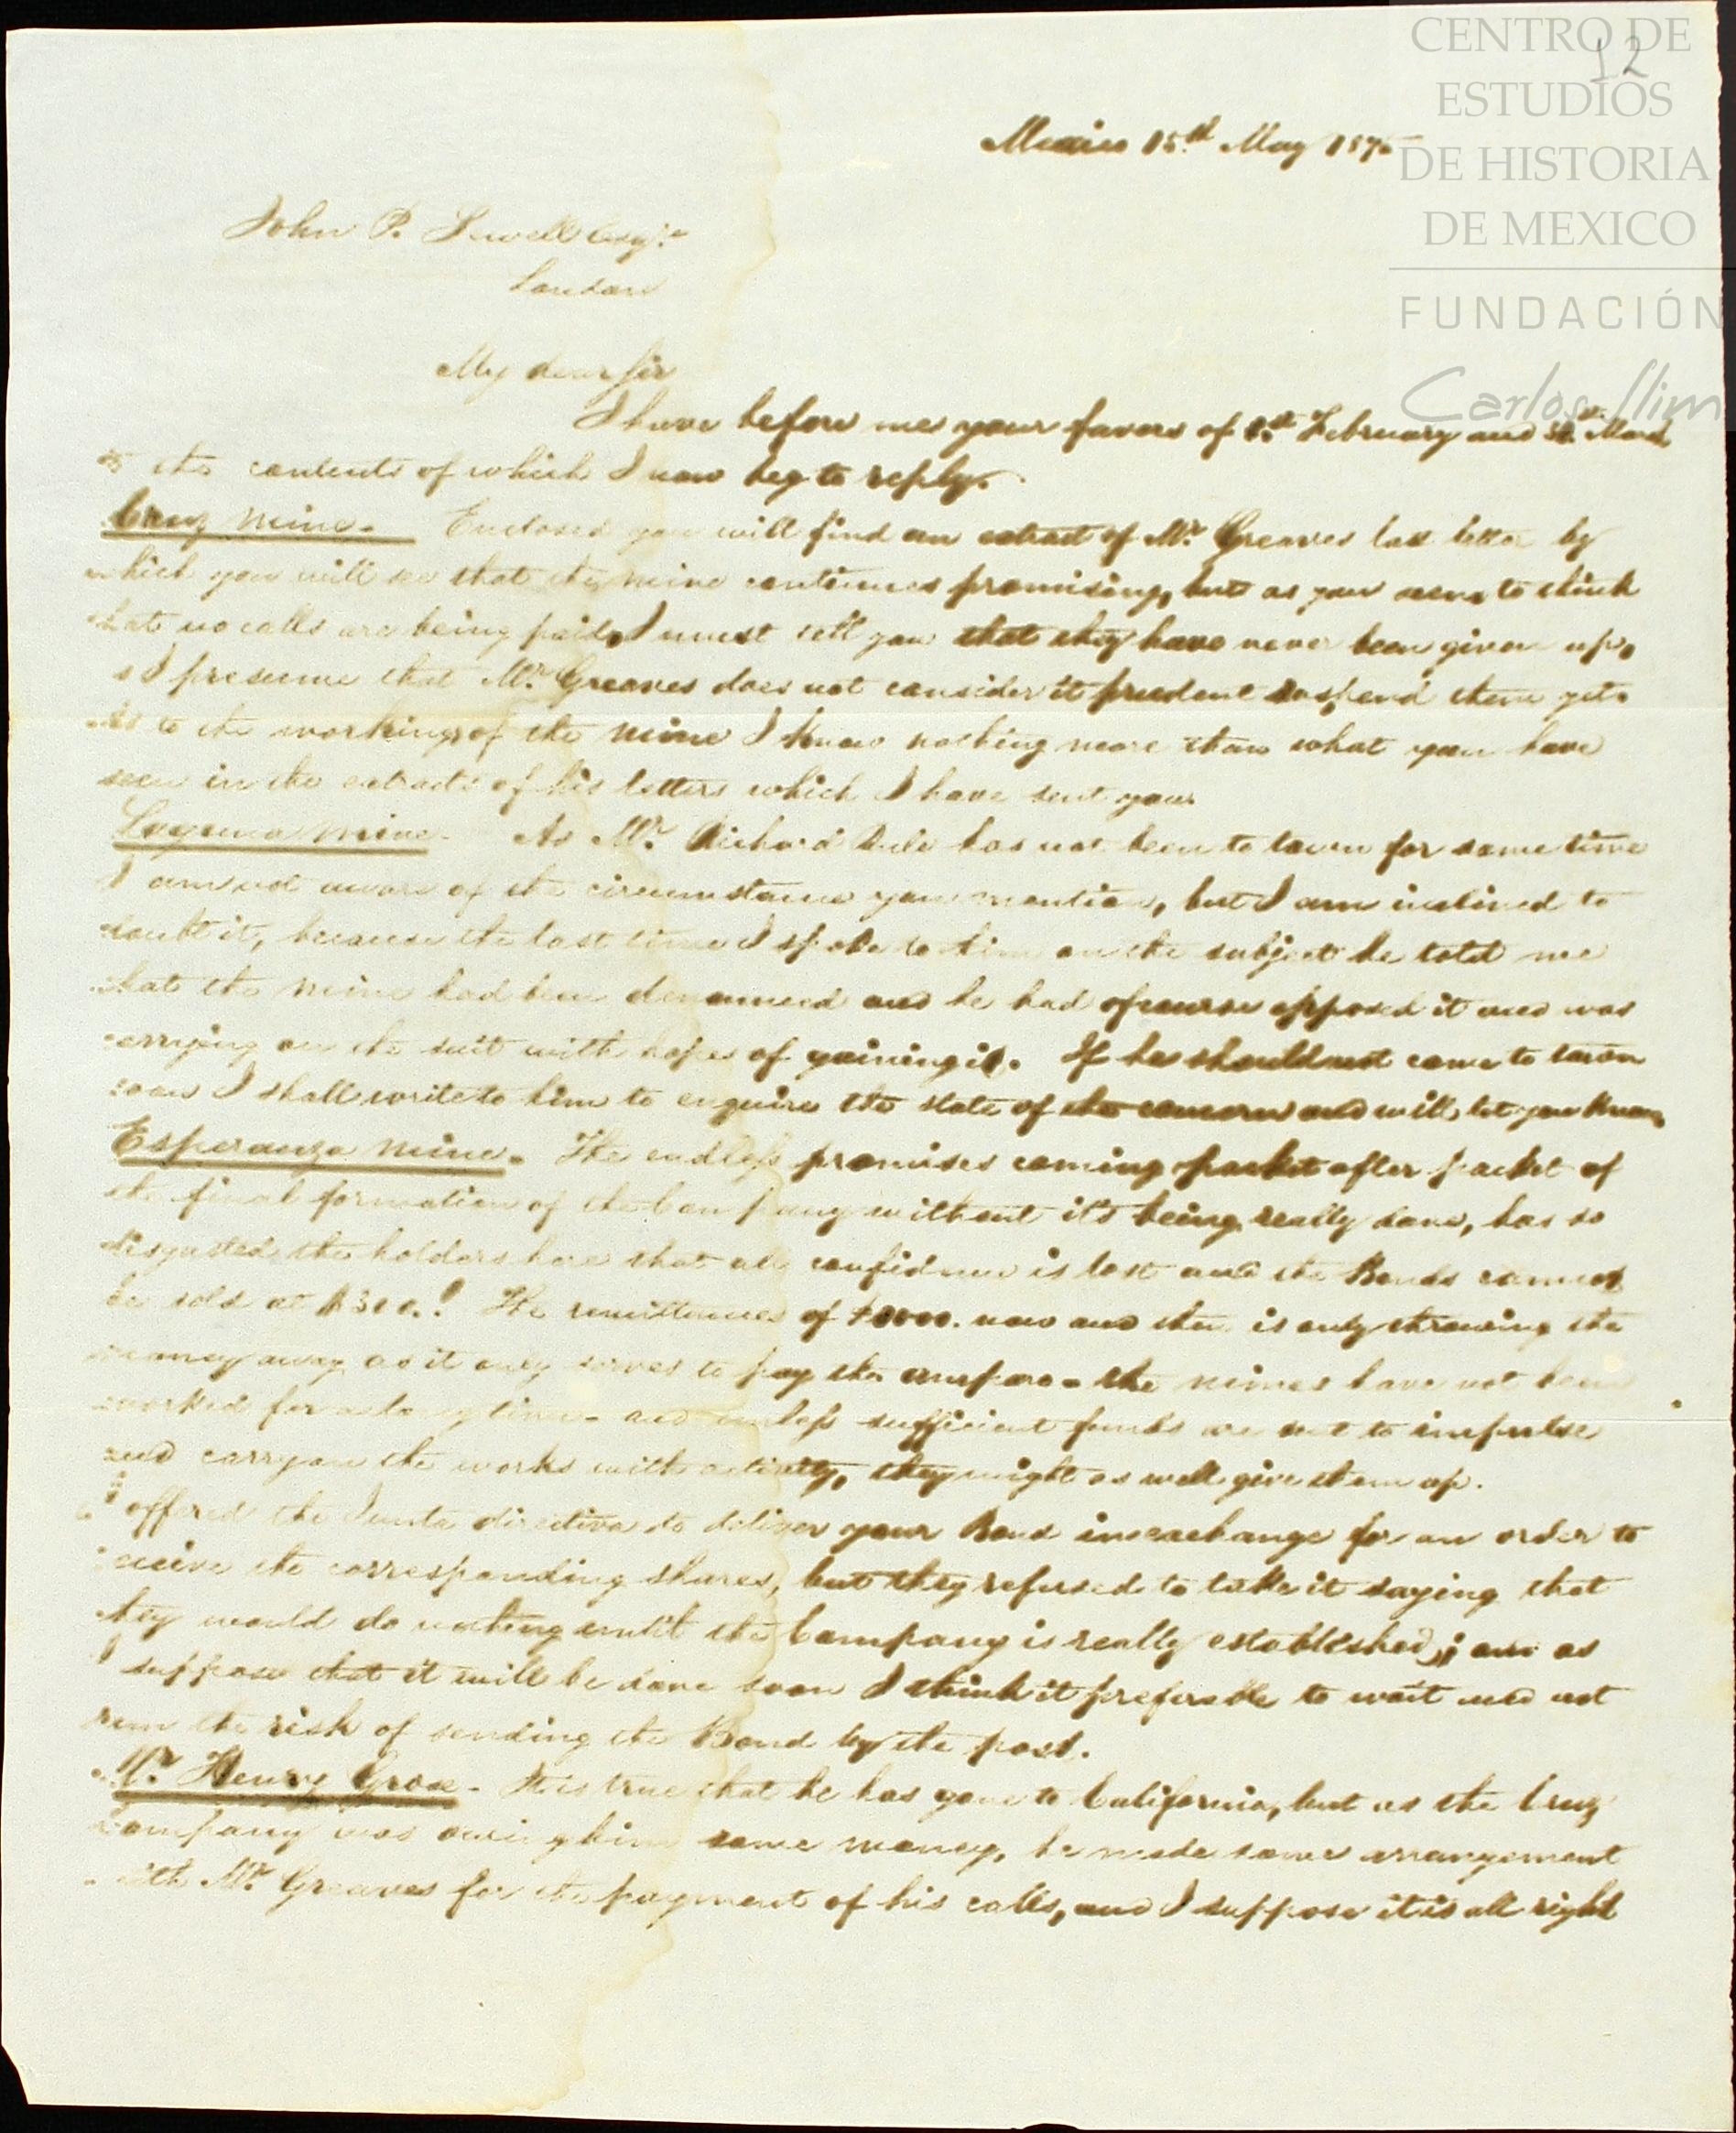 CENTRO DE
ESTUDIOS
DE HISTORIA
DE MEXICO
FUNDACIÓN
Carlos Slim
12
Mexico 15th May 187
John P. Esqre
London
My dear Sir
I have before me your favors of 1st February and March
to the contents of which I now beg to reply.
Cruz Mine. Enclosed you will find an extract of Mr. Greaves last letter by
which you will see that the mine continues promising, but as you seem to think
that no calls are being paid, I must tell you that they have never been given up,
as I presume that Mr. Greaves does not consider it prudent suspend them yet.
As to the workings of the mine I know nothing more than what you have
seen in the extracts of his letters which I have sent you.
Laguna Mine. As Mr. Richard Rule has not been to town for some time
I am not aware of the circumstance you mention, but I am inclined to
doubt it, because the last time I spoke to him on the subject he told me
that the mine had been denounced and he had of course opposed it and was
carrying on the suit with hopes of gaining it. If he should not come to town
soon I shall write to him to enquire the state of the concern and will let you know
Esperanza Mine. The endless promises coming packet after packet of
the final formation of the Company without it's being really done, has so
disgusted the holders here that all confidence is lost and the Bonds cannot
be sold at $300.! The remittances of now and then is only throwing the
money away as it only serves to pay the amparo - the mines have not been
worked for a long time - and unless sufficient funds are sent to impulse
and carry on the works with activity, they might as well give them up.
I offered the Junta directiva to deliver your Bond in exchange for an order to
receive the corresponding shares, but they refused to take it saying that
they would do nothing until the Company is really established; and as
I suppose that it will be done soon I think it preferable to wait and not
run the risk of sending the Bond by the post.
Mr. Henry Grose - It is true that he has gone to California, but as the Cruz
Company was owing him some money, he made some arrangement
with Mr. Greaves for the payment of his calls, and I suppose it is all right